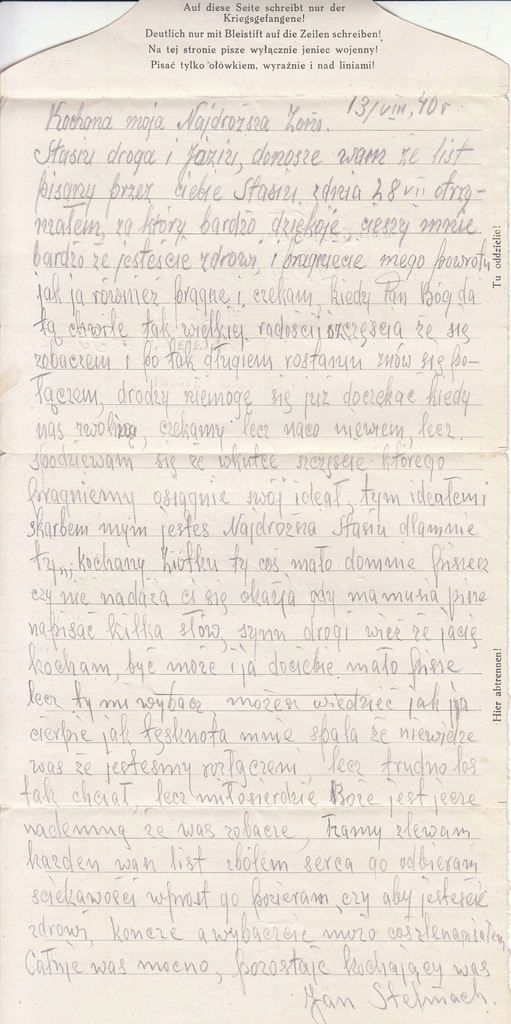 Auf diese Seite schreibt nur der
Kriegsgefangene!
Deutlich nur mit Bleistift auf die Zeilen schreiben!
Na tej stronie pisze wyłącznie jeniec wojenny!
Pisać tylko ołówkiem, wyraźnie i nad liniami!
13/VIII, 40 r
Kochana moja Najdroższa Żono.
Stasiu droga i Józiu, donosze wam że list
pisany przez ciebie Stasiu zdnia 28 VII otrzy-
małem, za który bardzo dziękoje, cieszy mnie
bardzo że jesteście zdrowi, i pragniecie mego powrotu
jak ja również prągne i czekam, kiedy Pan Bóg da
tą chwile tak wielkiej radości i szczęścia że się
zobaczem i po tak długiem rostaniu znów się po-
łączem, drodzy niemogę się już doczekać kiedy
nas zwolnią, czekamy lecz naco niewiem, lecz
spodziewam się że wkutce szczęście którego
pragniemy osiągnie swój ideał, tym ideałem i
skarbem mym jesteś Najdroższa Stasiu dlamnie
ty,,, kochany Ziótku ty coś mało domnie piszesz
czy nie nadaża ci się okazja gdy mamusia pisze
napisać kilka słów, synu drogi wiez że jacię
kocham, być może i ja dociebie mało pisze
lecz ty mi wybacz możesz wiedzieć jak ja
cierpie jak tęsknota mnie spala że niewidze
was że jestesmy rozłączeni, lecz trudno los
tak chciał, lecz miłosierdzie Boże jest jeszcze
nademną że was zobacze, łzamy zlewam
każden wasz list zbólem serca go odbieram
sciekawości wprost go pożeram, czy aby jesteście
zdrowi, koncze a wybaczcie może coś zlenapisałem,
Całuje was mocno, pozostaje kochający was
Jan Stelmach.
Tu oddzielić!
Hier abtrennen!